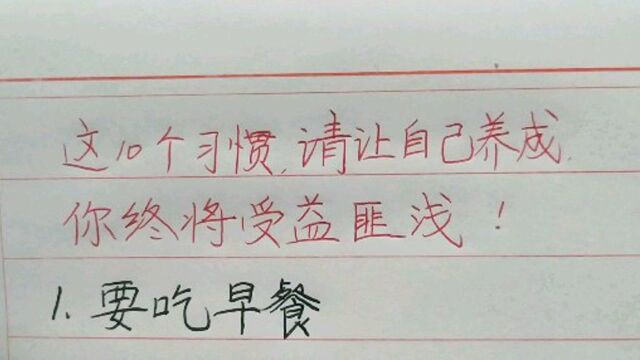 这10个习惯,请让自己养成,
你终将受益匪浅!
1.要吃早餐